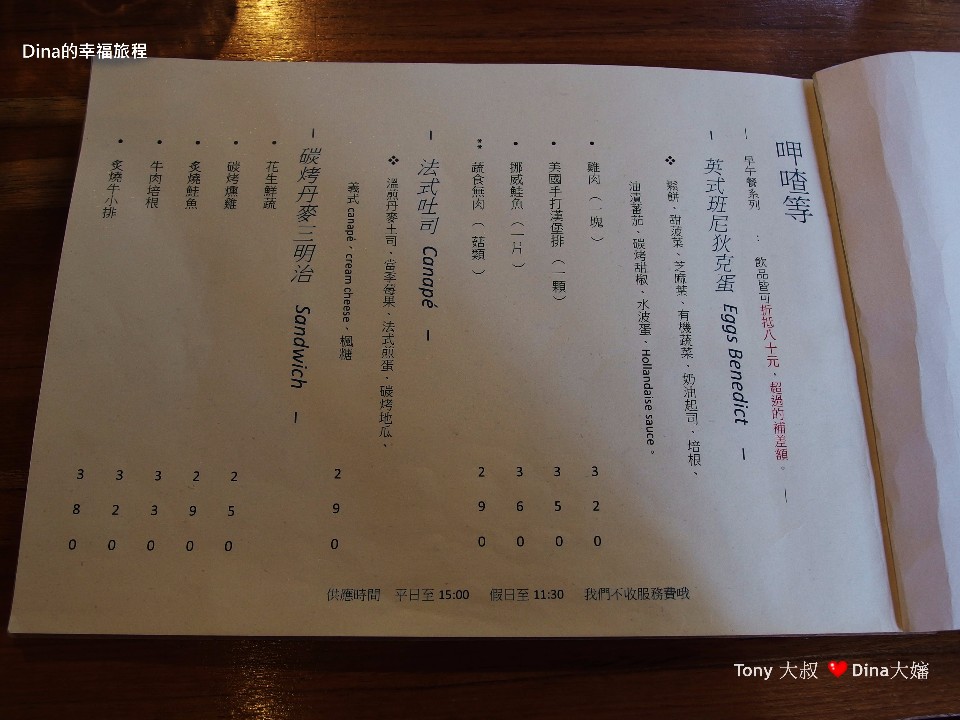 Dina的幸福旅程
呷喳等
— 早午餐系列 : 飲品皆可折抵八十元，超過的補差額。 —
— 英式班尼狄克蛋 Eggs Benedict —
❖ 鬆餅、甜菠菜、芝麻葉、有機蔬菜、奶油起司、培根、
油漬蕃茄、碳烤甜椒、水波蛋、Hollandaise sauce。
• 雞肉（一塊） 320
• 美國手打漢堡排（一顆） 350
• 挪威鮭魚（一片） 360
• 蔬食無肉（菇類） 290
— 法式吐司 Canapé —
❖ 溫煎丹麥土司，當季莓果、法式煎蛋，碳烤地瓜、
義式 canapé，cream cheese，楓糖 290
— 碳烤丹麥三明治 Sandwich —
• 花生鮮蔬
• 碳烤燻雞 250
• 炙燒鮭魚 290
• 牛肉培根 330
• 炙燒牛小排 320
380
供應時間 平日至 15:00 假日至 11:30 我們不收服務費哦
Tony 大叔 ❤ Dina大嬸